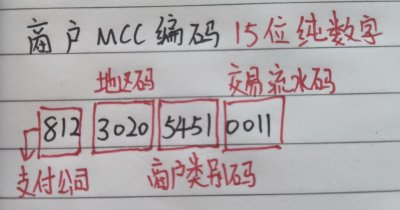 商户MCC编码 15位纯数字
地区码 交易流水码
812 3020 5451 0011
支付公司 商户类别码